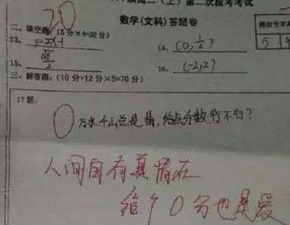 (上)第二次段考考试
数学(文科)答题卷
20
二、填空题(5分×4=20分)
13、y=2x-1
14、(0,1/2)
15、
16、(-2,2)
三、解答题:(10分+12分×5=70分)
17题:
0
万水千山总是情,给点分数行不行?
人间自有真情在
给个0分也是爱